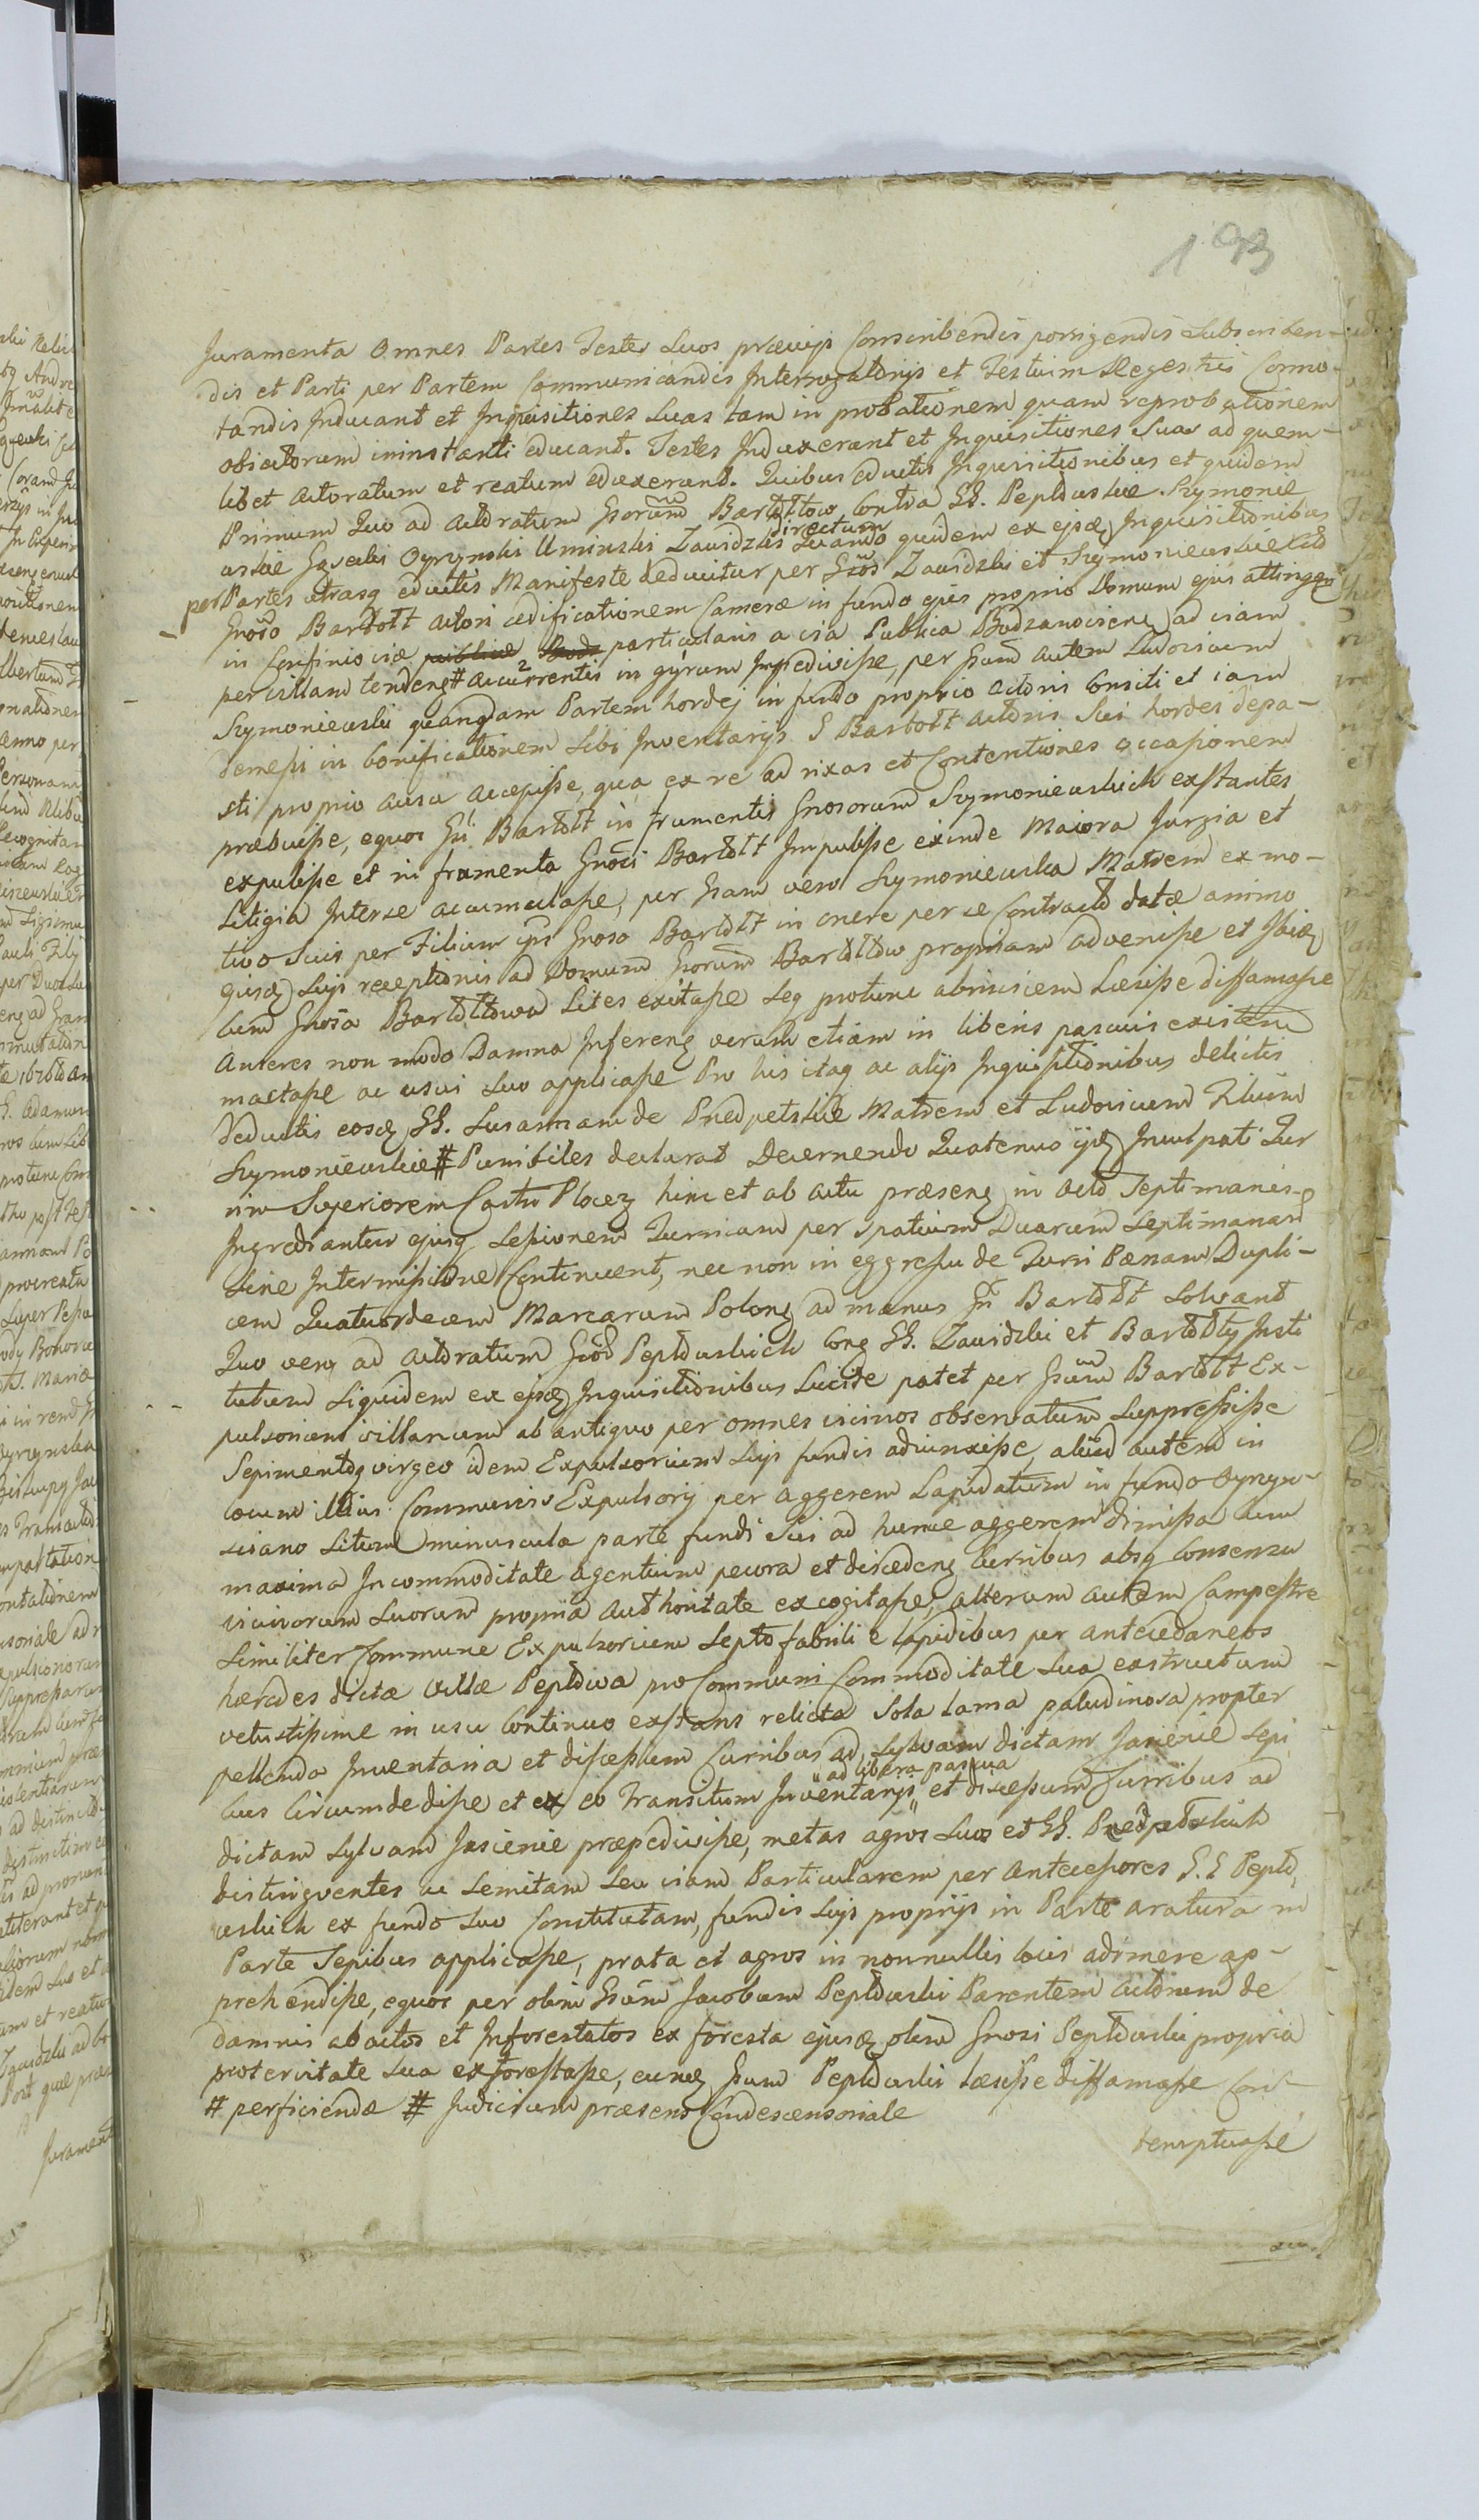 193
Juramenta Omnes Partes Testes Suos prævijs Conscribendis porrigendis Subscriben-
dis et Parti per Partem Communicandis Interrogatorijs et Testium Regestris Conno-
tandis Inducant et Inquisitiones Suas tam in probationem quam reprobationem
obiectorum in instanti educant. Testes Induxerunt et Inquisitiones Suas ad quem-
libet Actoratum et reatum eduxerunt. Quibus eductis Inquisitionibus et quidem
Primum Quo ad Actoratum Gsorum Bartoltow Contra GG. Peplowskie Szymonie
wskie Ogrynski Uminski Zawidzkie directum Quando quidem ex ejsdq Inquisitionibus
per Partes utrasq eductis Manifeste deducitur per Gsos Zawidzki et Szymoniewskie
Gnoso Bartolt actori ædificationem Cameræ in fundo ejus proprio Domum ejus attingen
in Confinio viæ particularis a via Publica Bodzanoviens ad viam
per villam tendens # accurrentis in gyrum Impedivisse, per Gsum autem Ludovicum
Szymoniewski quandam Partem hordej in fundo proprio actoris Consiti et iam
demessi in bonificationem Sibi Inventarijs G Bartolt actoris Sui hordei depa-
sti proprio ausu accepisse, qua ex re ad rixas et Contentiones occasionem
præbuisse, equos Gsi Bartolt in frumentis Gnosorum Szymoniewskich exstantes
expulisse et in frumenta Gnosi Bartolt Impulisse exinde Maiora Jurgia et
Litigia Inter se accumulasse, per Gsam vero Szymoniewska Matrem ex mo-
tivo Suis per Filium ipsi Gnoso Bartolt in onere per se Contracto datæ animo
Suijs receptionis ad Domum Gsorum Bartoltow propriam advenisse et Ibidq
cum Gnosa Bartoltowa Lites excitasse Seq protunc ad invicem Læsisse diffamasse
Anseres non modo Damna Inferens verum etiam in liberis pascuis existen
mactasse ac usui Suo applicasse Pro his itaq ac alijs Inquisitionibus delictis
Deductis eosdq GG. Susannam de Przedpelskie Matrem et Ludovicum Filium
Szymoniewskie # Punibiles declarat Decernendo Quatenus ijdq Inculpati Tur
rim Superiorem Castri Plocen hinc et ab actu præsens in octo Septimanis
Ingrediantur ejusq Sessionem Turricam per spatium Duarum Septimanarum
sine Intermissione Continuent, nec non in eggressu de Turri Pænam Dupli-
cem Quatuordecem Marcarum Polonq ad manus Gsi Bartolt Solvant
Quo vero ad Actoratum Gsor Peplowskich Cong GG. Zawidzki et Bartolty Insti
tutum Siquidem ex ejsdq Inquisitionibus Lucide patet per Gsum Bartolt Ex-
pulsorium villanum ab antiquo per omnes vicinos observatum Suppressisse
Sepimentoq virgeo idem Expulsorium Suijs fundis adiunxisse, aliud autem in
locum illius Communis Expulsorij per aggerem Lapidatum in fundo Ogryn-
sciano Situm minuscula parte fundi Sui ad hunc aggerem dimissa cum
maxima Incommoditate agentium pecora et discedens Curribus absq Consensu
vicinorum Suorum propria Authoritate excogitasse, alterum autem Campestre
Similiter Commune Expulsorium Septo fabrili e lapidibus per antecedaneos
hæredes dictæ villæ Peplowa pro Communi Commoditate Sua exstructum
vetustissime in usu Continuo exstans relicta Sola Lama paludinosa propter
pellenda Inventaria et discessum Curribus ad Sylvam dictam Jasienie Sepi
bus Circumdedisse et ex eo Transitum Inventarijs "ad libera pascua" et discessum Curribus ad
dictam Sylvam Jasienie præpedivisse, metas agros Suos et GG. Przedpelskich
distingventes ac Semitam Seu viam Particularem per Antecessores G.G Peplo
wskich ex fundo Suo Constitutam, fundis Suijs proprijs in Parte aratura in
Parte Sepibus applicasse, prata et agros in nonnullis locis adimere ap-
prehendisse, equos per olim Gsum Jacobum Peplowski Parentem actorum de
damnis abactos et Inforestatos ex foresta ejusdq olim Gnosi Peplowski propria
protervitate Sua exforestasse, eundq Gsum Peplowski Læsisse diffamasse Con-
# perficiendæ # Judicium præsens Condescensoriale
temptuasse